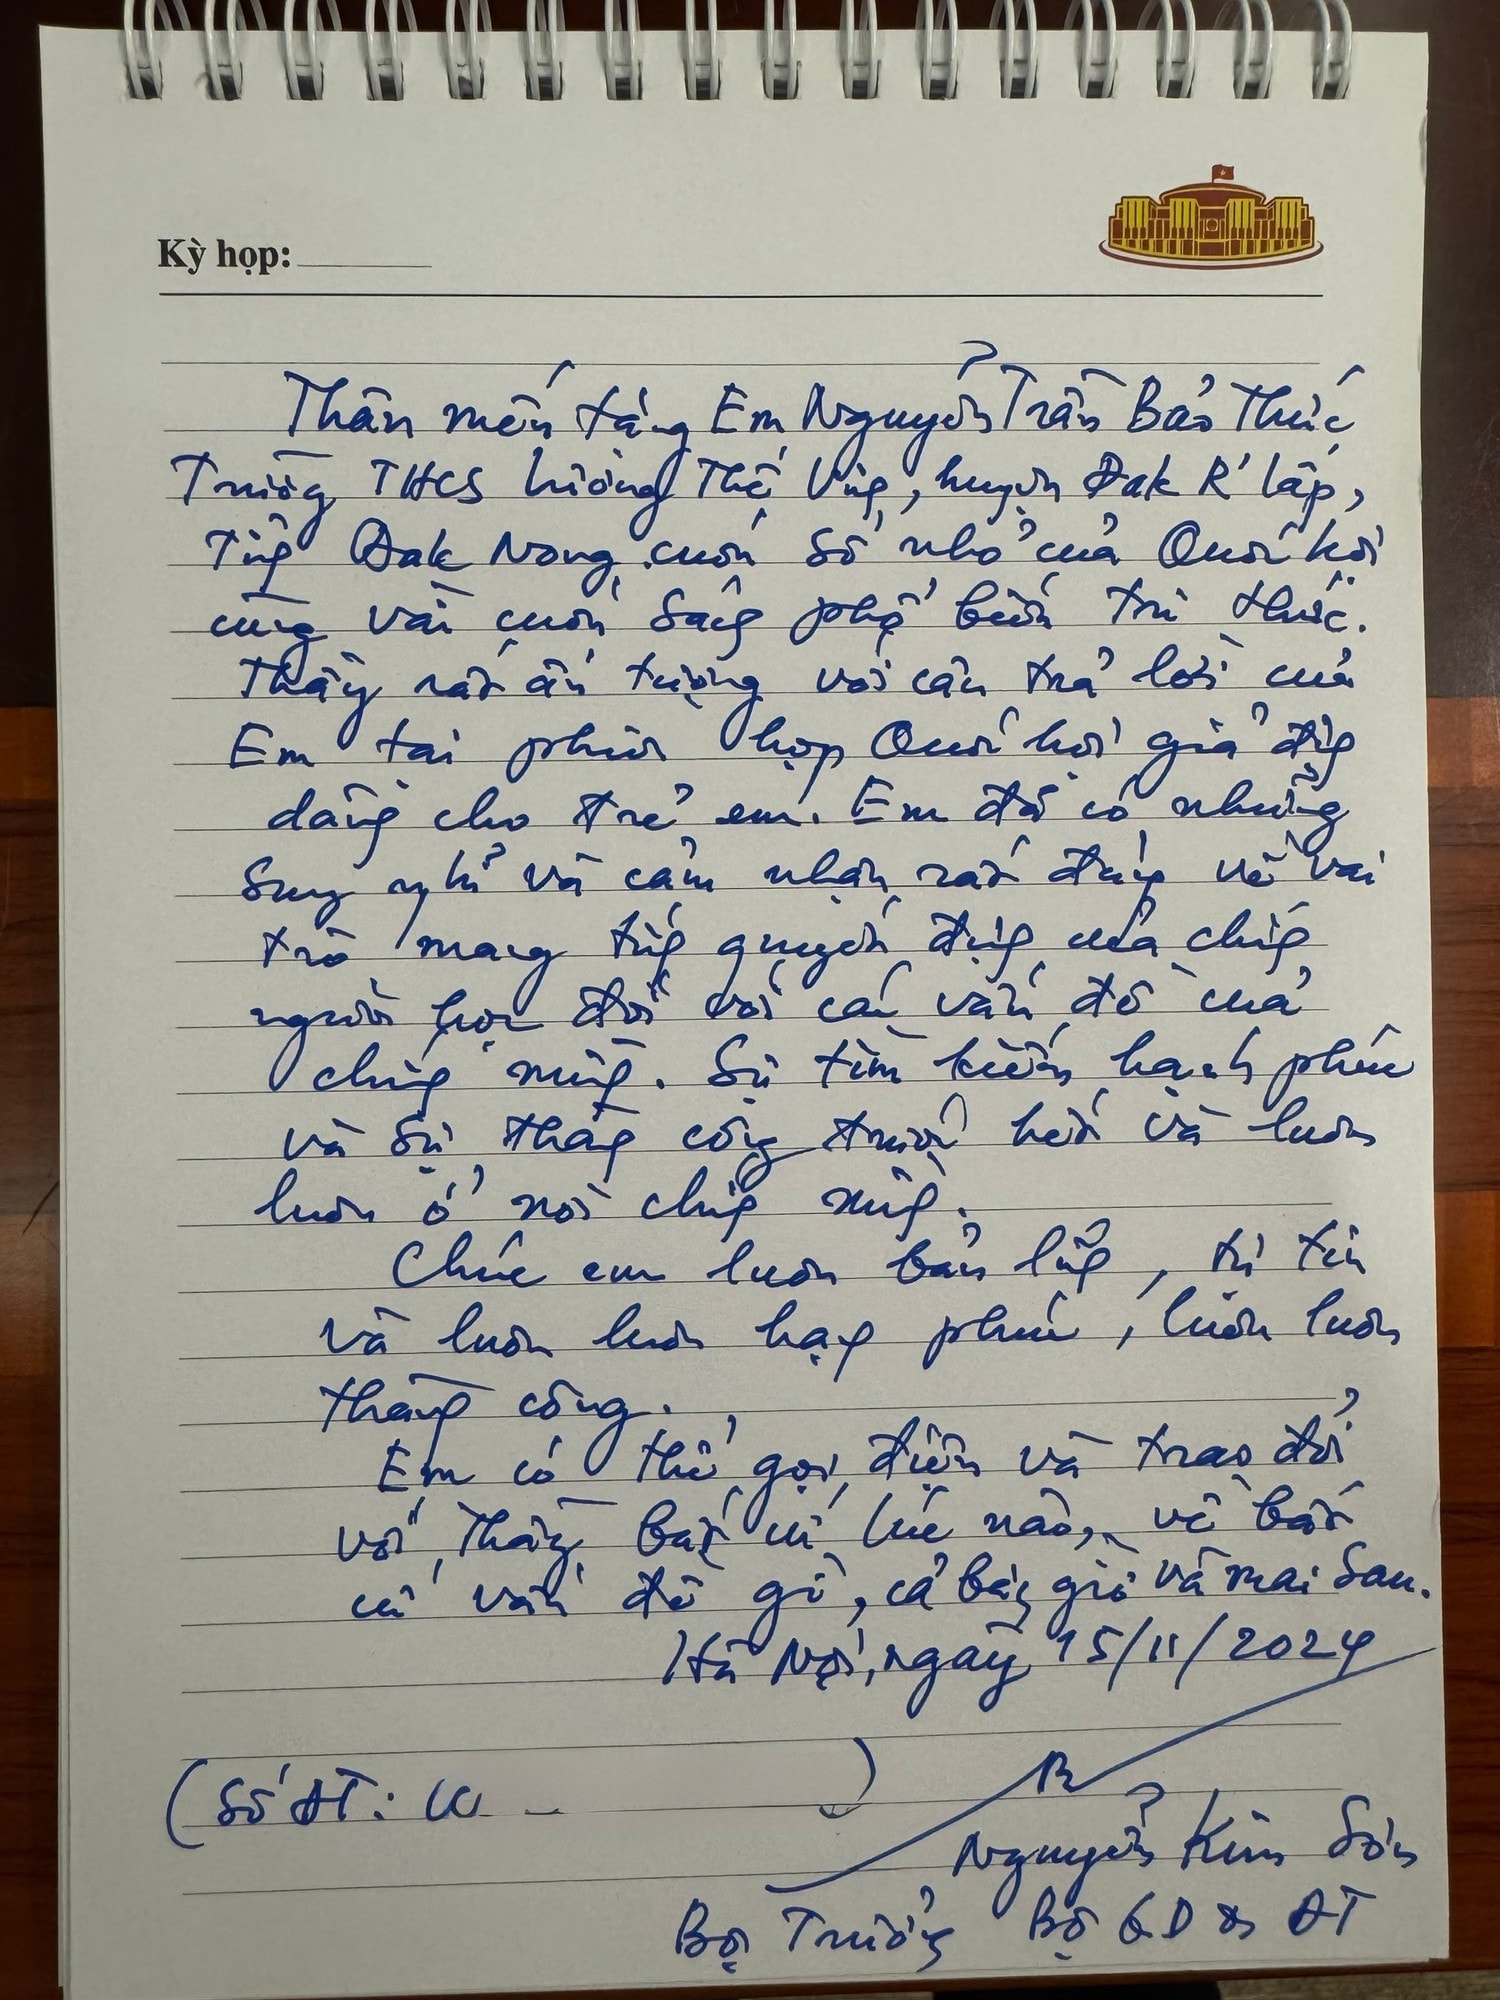 Kỳ họp:
Thân mến tặng Em Nguyễn Trần Bảo Thúc
Trường THCS Lương Thế Vinh, huyện Đak R'lấp,
Tỉnh Đak Nong cuốn sổ nhỏ của Quốc hội
cùng với cuốn sách phổ biến tri thức.
Thầy rất ấn tượng với câu trả lời của
Em tại phiên họp Quốc hội giả định
dành cho trẻ em. Em đã có những
suy nghĩ và cảm nhận rất đúng về vai
trò mang tính quyết định của chính
người học đối với các vấn đề của
chính mình. Sự tìm kiếm hạnh phúc
và sự thành công trước hết và luôn
luôn ở nơi chính mình.
Chúc em luôn bản lĩnh, tự tin
và luôn luôn hạnh phúc, luôn luôn
thành công.
Em có thể gọi điện và trao đổi
với Thầy bất cứ lúc nào, về bất
cứ vấn đề gì, cả bây giờ và mai sau.
Hà Nội, ngày 15/11/2024
(Số ĐT: )
Nguyễn Kim Sơn
Bộ Trưởng Bộ GD & ĐT